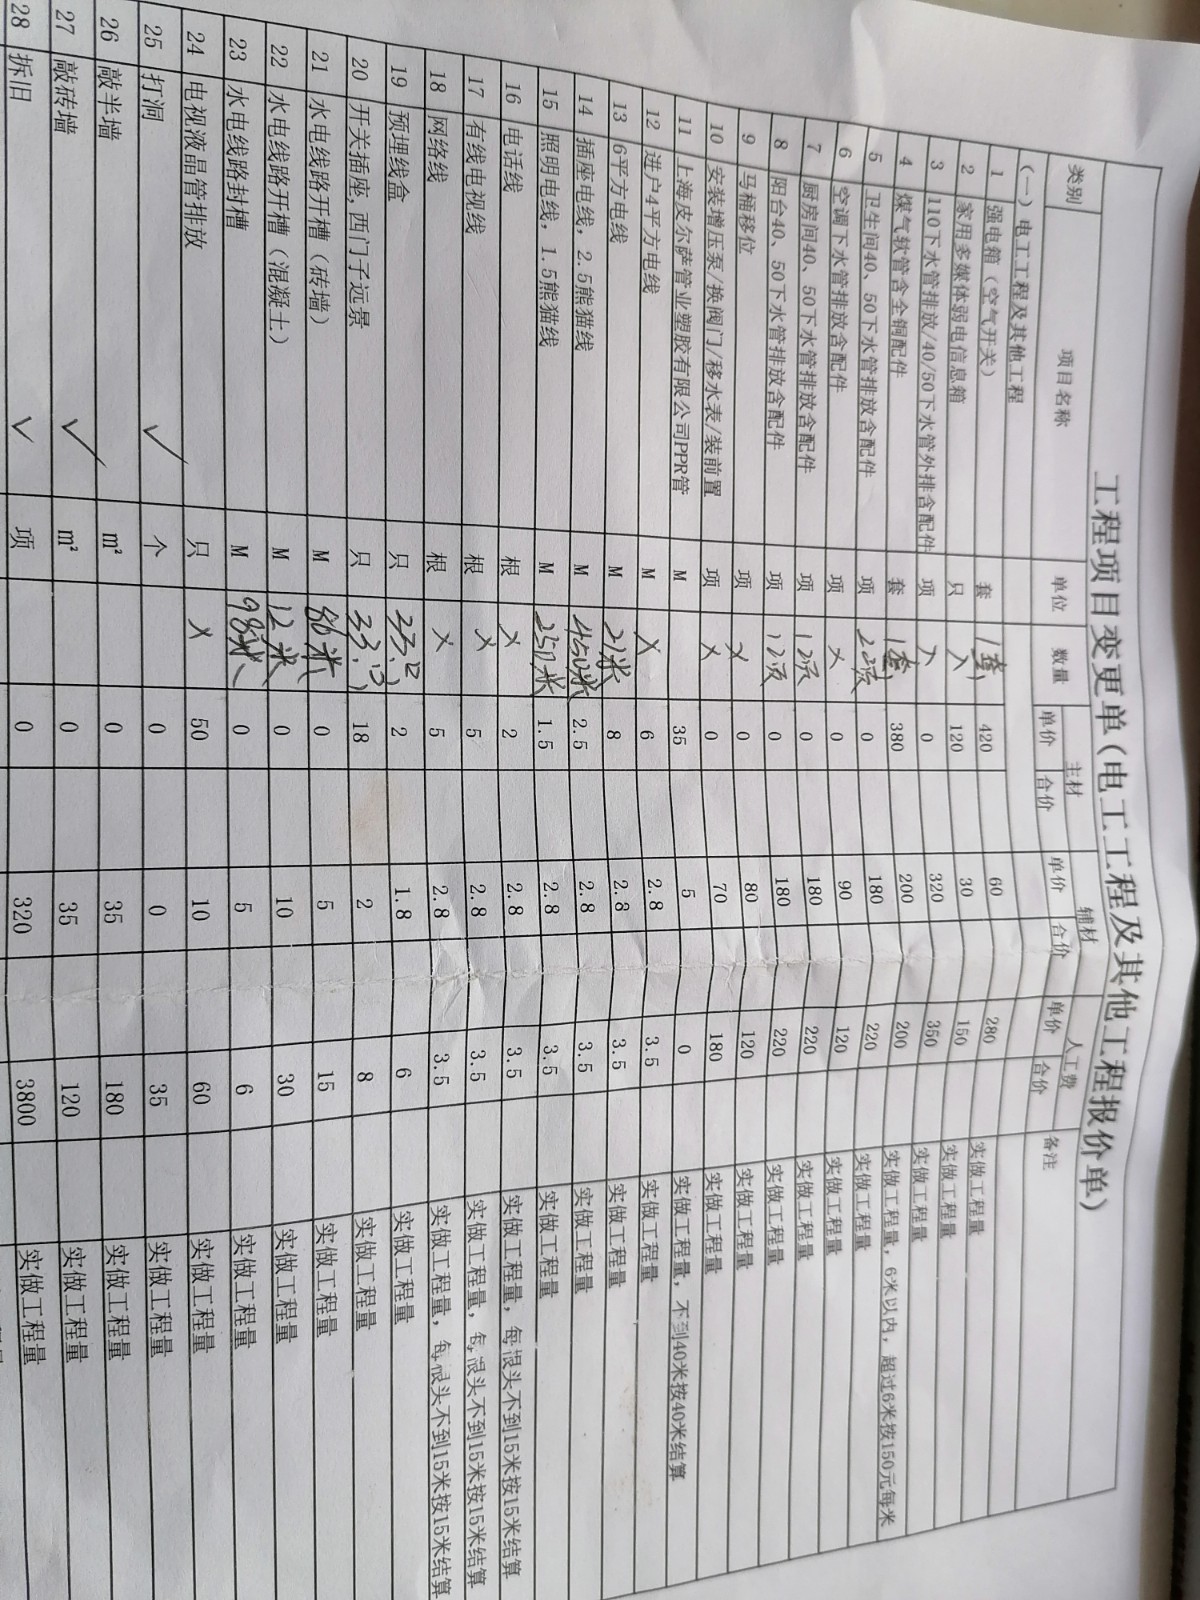 工程项目变更单(电工工程及其他工程报价单)
类别 项目名称 单位 数量 主材 辅材 人工费 备注
单价 合价 单价 合价 单价 合价
(一)电工工程及其他工程
1 强电箱(空气开关) 套 1套 420 60 280 实做工程量
2 家用多媒体弱电信息箱 只 120 30 150 实做工程量
3 110下水管排放/40/50下水管外排含配件 项 0 320 350 实做工程量
4 煤气软管含全铜配件 套 1套 380 200 200 实做工程量,6米以内,超过6米按150元每米
5 卫生间40、50下水管排放含配件 项 0 180 220 实做工程量
6 空调下水管排放含配件 项 × 0 90 120 实做工程量
7 厨房间40、50下水管排放含配件 项 0 180 220 实做工程量
8 阳台40、50下水管排放含配件 项 0 180 220 实做工程量
9 马桶移位 项 × 0 80 120 实做工程量
10 安装增压泵/换阀门/移水表/装前置 项 × 0 70 180 实做工程量
11 上海皮尔萨管业塑胶有限公司PPR管 M 35 5 0 实做工程量,不到40米按40米结算
12 进户4平方电线 M × 6 2.8 3.5 实做工程量
13 6平方电线 M 21米 8 2.8 3.5 实做工程量
14 插座电线,2.5熊猫线 M 450米 2.5 2.8 3.5 实做工程量
15 照明电线,1.5熊猫线 M 250米 1.5 2.8 3.5 实做工程量
16 电话线 根 × 2 2.8 3.5 实做工程量,每根头不到15米按15米结算
17 有线电视线 根 × 5 2.8 3.5 实做工程量,每根头不到15米按15米结算
18 网络线 根 × 5 2.8 3.5 实做工程量,每根头不到15米按15米结算
19 预埋线盒 只 33.只 2 1.8 6 实做工程量
20 开关插座,西门子远景 只 33. 18 2 8 实做工程量
21 水电线路开槽(砖墙) M 86米 0 5 15 实做工程量
22 水电线路开槽(混凝土) M 12米 0 10 30 实做工程量
23 水电线路封槽 M 98米 0 5 6 实做工程量
24 电视液晶管排放 只 × 50 10 60 实做工程量
25 打洞 ✓ 个 0 0 35 实做工程量
26 敲半墙 m² 0 35 180 实做工程量
27 敲砖墙 ✓ m² 0 35 120 实做工程量
28 拆旧 ✓ 项 0 320 3800 实做工程量